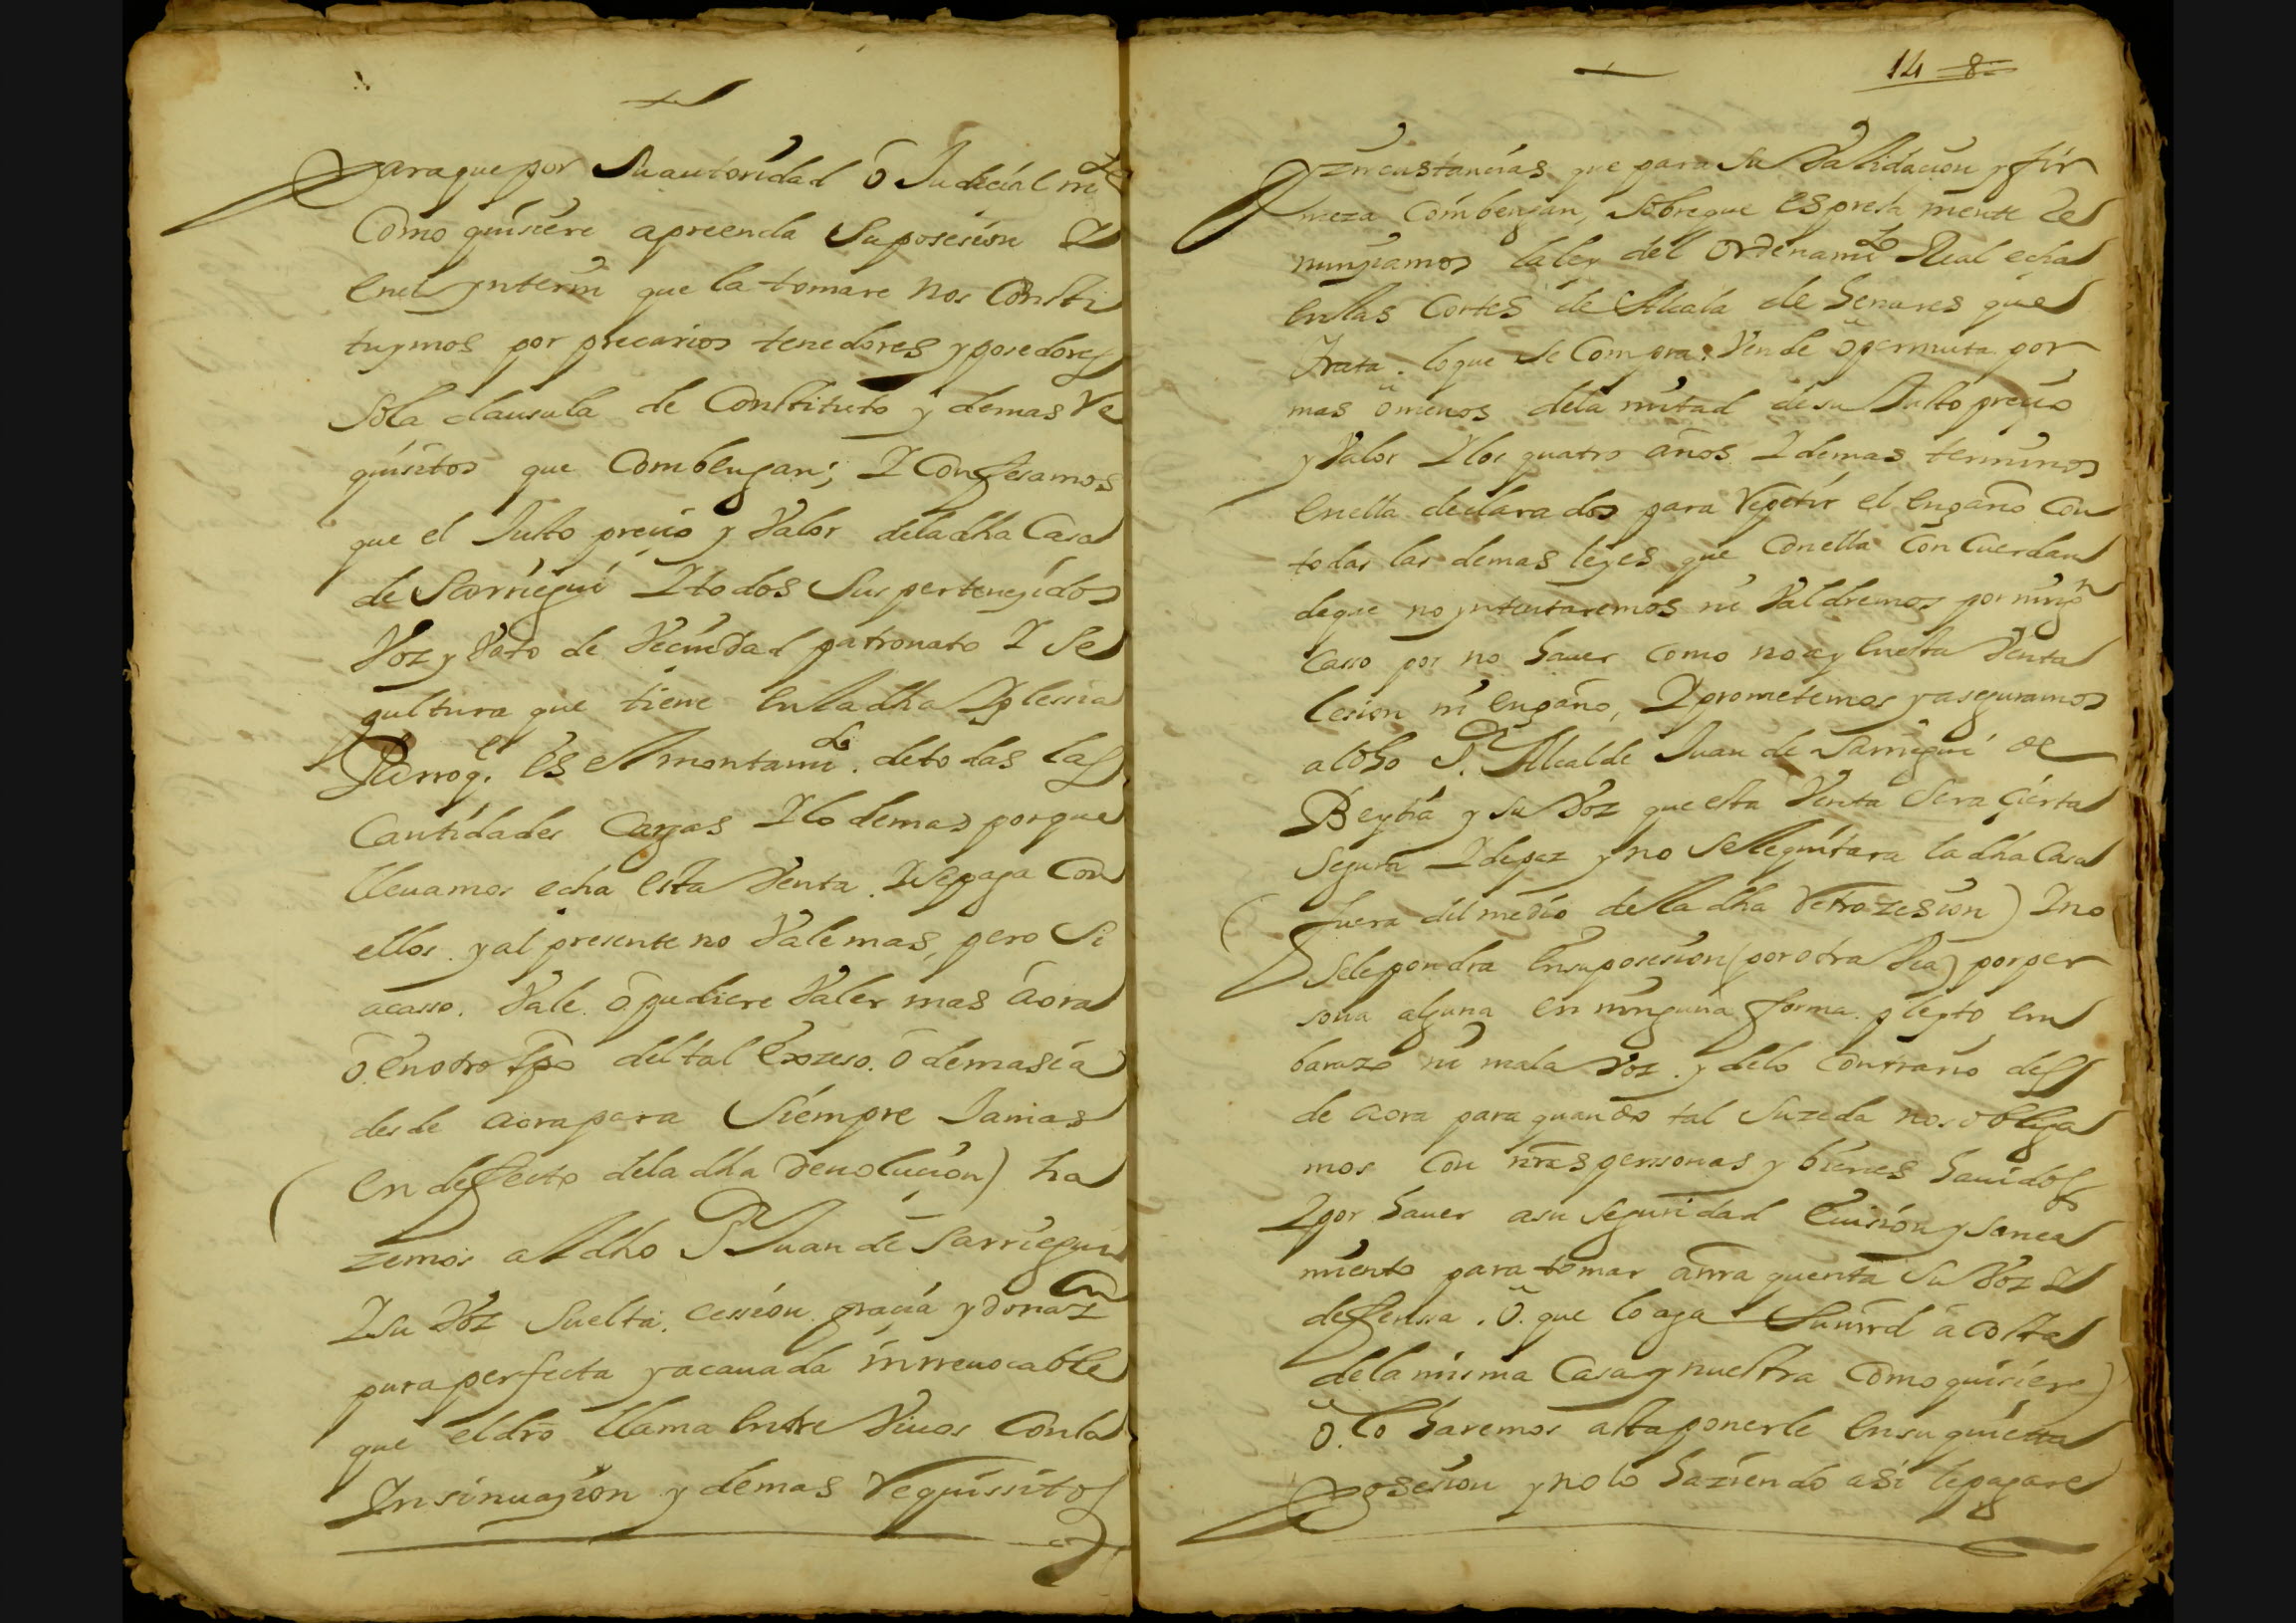 Paraque por su autoridad ô Judicialmte
Como quisiere apreenda suposesion I
enel ynterin que la tomare nos Consti
tuymos por precarios tenedores yposedores
sola clausula de Constituto y demas re
quisitos que Combengan; I Confesamos
que el Justo preçio y Valor deladha Casa
de Sarriegui Itodos sus perteneçidos
Voz y Voto de Veçindad patronato I se
pultura que tiene enladha Iglessia
Parroql. es elmontamto. detodas las
Cantidades Cargas Ilo demas porque
lleuamos echa esta Venta. Isepaga Con
ellos. yal presente no Vale mas, pero si
acasso. Vale. ô pudiere Valer mas âora
ô. enotro tpo deltal exzeso. ô demasia
desde aorapara siempre Jamas
(en deffecto deladha deuoluçion) ha
zemos aldho Sr Juan de Sarriegui
Isu Voz suelta, cession graçia ydonazon
pura perfecta yacauada inrreuocable
que eldro llama entre Viuos Conla
Insinuaçion y demas requissitos
14 8
Çircustançias que para su Validaçion yfir
meza Combengan, sobreque espresamente re
nunçiamos laley del ordenamto Real echa
enlas Cortes de Alcala de henares que
trata. loque se Compra. Vende ôpermuta por
mas ômenos dela mitad desu Justo preçio
y Valor Ilos quatro años Idemas terminos
enella declarados para repetir el engaño Con
todas las demas leyes que Conella Concuerdan
deque no yntentaremos ni Valdremos por ningn
Casso por no hauer como noay enesta Venta
lesion ni engaño, Iprometemos yaseguramos
aldho Sr. Alcalde Juan de Sarriegui de
Beytia y su Voz que esta Venta sera çierta
segura Idepaz yno sellequitara ladha Casa
(fuera delmedio delladha retrozesion) Ino
selepondra ensuposesion (porotra Via) porper
sona alguna en ninguna forma. pleyto em
barazo ni mala Voz. y delo Contrario des
de aora para quando tal suzeda nos obliga
mos Con nras personas y bienes hauidos
Ipor hauer asu seguridad euision y sanea
miento para tomar anra quenta su Voz I
deffenssa. ô. que lo aga su mrd â costa
dela misma Casa y nuestra Como quisiere
ô. lo haremos asta ponerle ensu quieta
Posesion ynolo haziendo asi lepagare